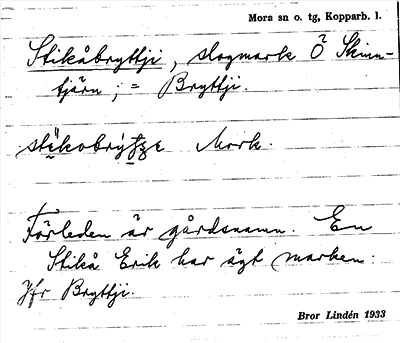 Mora sn o. tg, Kopparb. l.
Stikåbryttji, slogmark Ö Skinn-
tjärn; = Bryttji.
Mork.
Förleden är gårdsnamn. En
Stikå Erik har ägt marken.
Jfr Bryttji.
Bror Lindén 1933